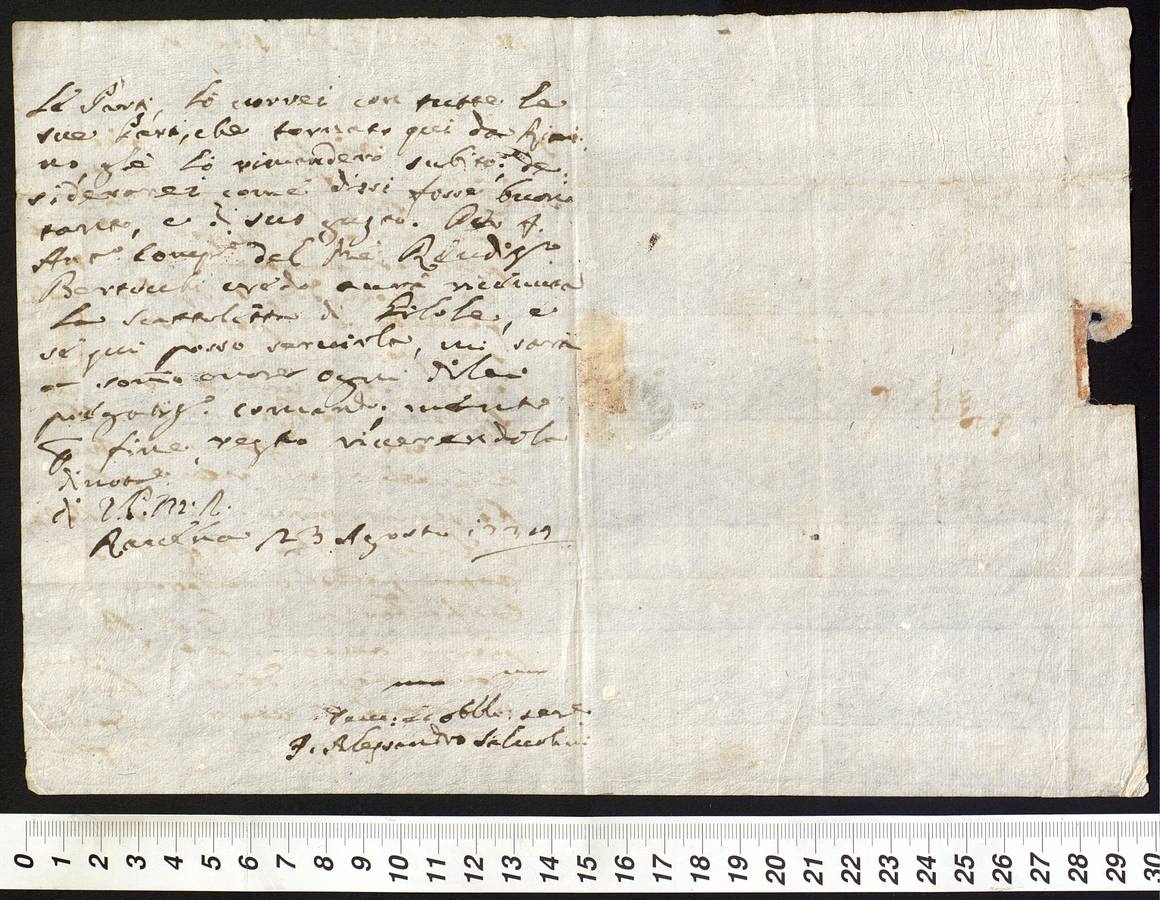 le Parti, lo vorrei con tutte le
sue Parti, che tornato qui da Rimi:
no, glè lo rimanderò subito; de:
siderarei come dissi fosse buono
tanto, e di suo gusto. P. F.
Ant.º Comp.º del Pre Rdmo
Bertoni credo aurà riceuuta
la scattoletta di Pilole, e
se qui posso seruirla, mi sarà
a sommo onore ogni di lei
pregiatis.º comando; mentre
per fine resto riuerendola
di V. P. M. R.
Rauenna 23 Agosto 1729
Deu: ed obbl: seru
F. Alessandro Saluolini
0 1 2 3 4 5 6 7 8 9 10 11 12 13 14 15 16 17 18 19 20 21 22 23 24 25 26 27 28 29 30